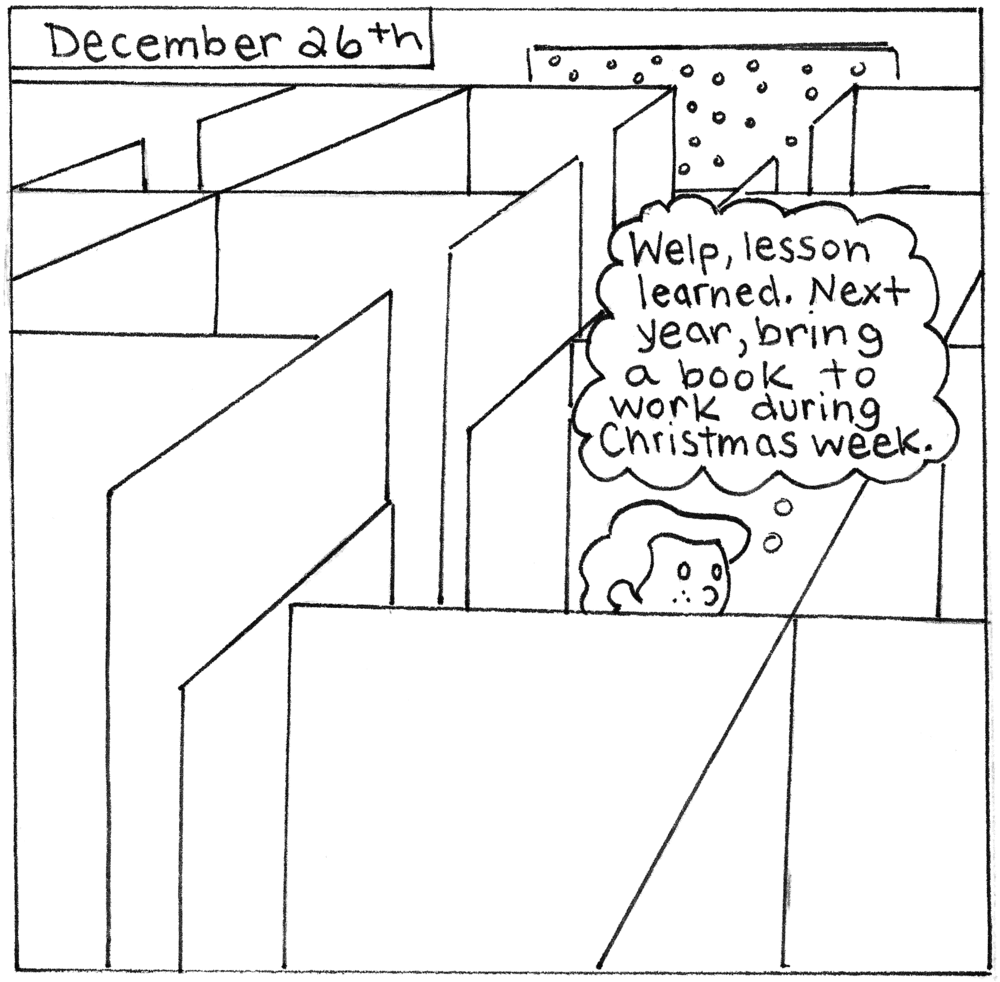 December 26th
Welp, lesson
learned. Next
year, bring
a book to
work during
Christmas week.